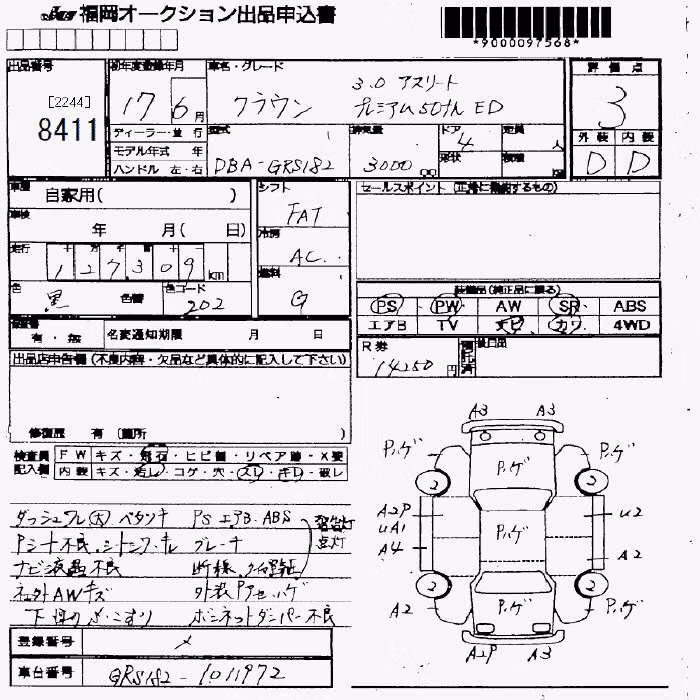 JU 福岡オークション出品申込書
*9000097568*
出品番号
[2244]
8411
初年度登録年月
17 6月
車名・グレード
クラウン
3.0 アスリート
プレミアム50thED
評価点
3
外装 内装
D D
ディーラー・並行
モデル年式 年
ハンドル 左・右
型式
DBA-GRS182
排気量
3000
CC
ドア
4
形状
定員
人
積載
車歴 自家用( )
車検 年 月( 日)
走行 十 万 千 百 十 一
127309 km
色 黒 色替
色コード 202
シフト
FAT
冷房
AC
燃料
G
セールスポイント (正常に機能するもの)
装備品 (純正品に限る)
PS PW AW SR ABS
エアB TV ナビ カワ 4WD
R券
14250円
預託済
後日品
有・無 名変通知期限 月 日
出品店申告欄 (不良内容・欠品など具体的に記入して下さい)
修復歴 有 (箇所 )
検査員 FW キズ・飛石・ヒビ割・リペア跡・X要
記入欄 内装 キズ・汚レ・コゲ・穴・スレ・キレ・破レ
ダッシュワレ大 ベタツキ PSエアB・ABS 警告灯
Pシート不良 ブレーキ 点灯
ナビ液晶不良 断線
社外AWキズ 外装Pハゲ
ボンネットダンパー不良
登録番号 メ
車台番号 GRS182-1011972
A3 A3
Pハゲ Pハゲ
Pハゲ
2 2
A2P U2
UA1 Pハゲ
A4 A2
2 2
A2 Pハゲ Pハゲ
A2P A3